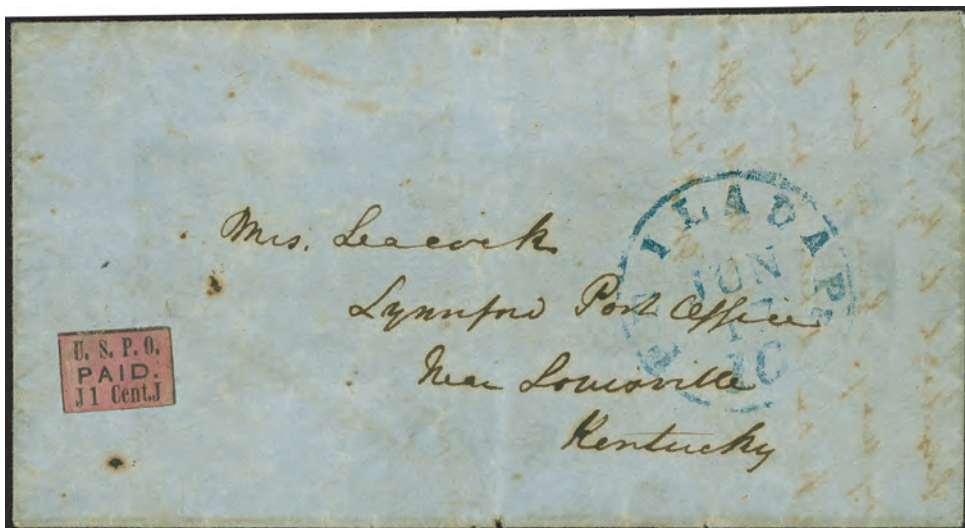 Mrs. Leacock
Lynnford Post Office
Near Louisville
Kentucky
U. S. P. O.
PAID.
J1 Cent.J
PHILADA Pa.
JUN
17
10